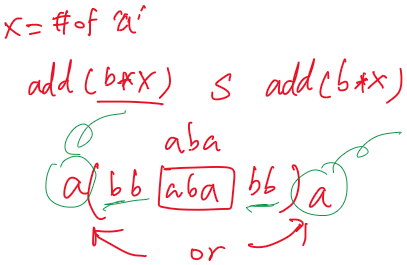 x = # of 'a'
add(b*x) s add(b*x)
aba
a(bb aba bb)a
or